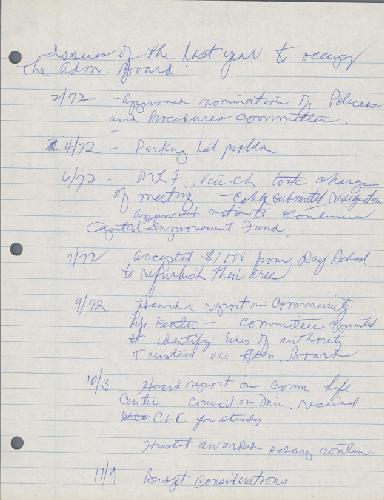 Issues of the last year to occupy
the Adm. Board:
2/72 - Approved nomination of Policies
and Procedures Committee.
4/72 - Parking lot problem
6/72 - M.L.F. took charge
of meeting - Coble submitted resignation
approved motion to continue
Capital Improvement Fund.
7/72 accepted $1,000 from Day School
to refurbish their area
9/72 Heard report on Community
Life Center - Committee appointed
to identify lines of authority
Trustees vs Adm. Board
10/3 Heard report on Comm Life
Center Council on Min. received
CLC for study
awarded
11/7 Budget Considerations